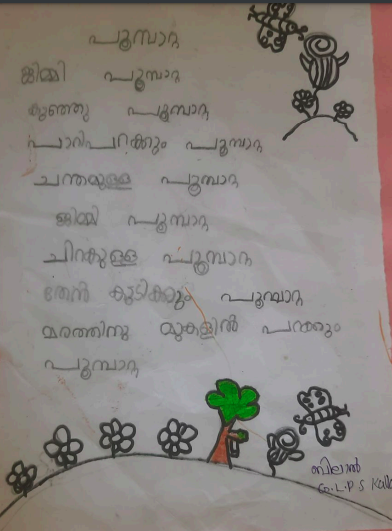 പൂമ്പാറ്റ
ജിമ്മി പൂമ്പാറ്റ
കുഞ്ഞു പൂമ്പാറ്റ
പാറിപറക്കും പൂമ്പാറ്റ
ചന്തമുള്ള പൂമ്പാറ്റ
ജിമ്മി പൂമ്പാറ്റ
ചിറകുള്ള പൂമ്പാറ്റ
തേൻ കുടിക്കും പൂമ്പാറ്റ
മരത്തിനു മുകളിൽ പറക്കും
പൂമ്പാറ്റ
ബിലാൽ
G.L.P S